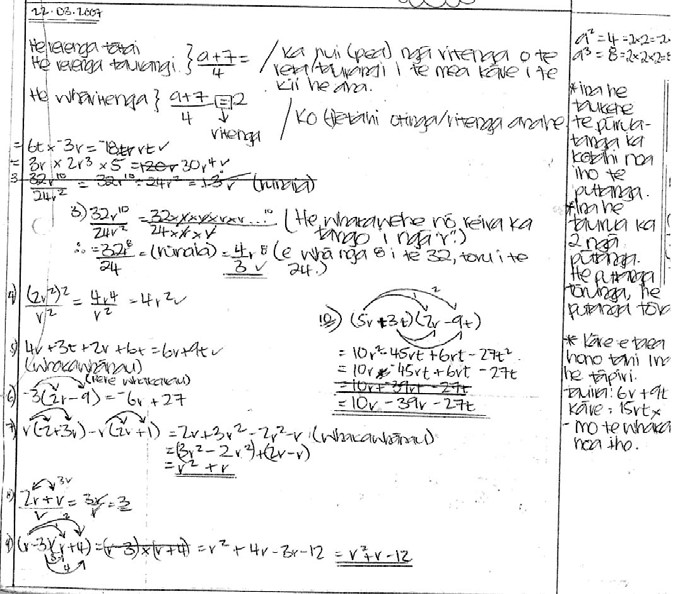 22.03.2007
He kerenga tātai
He kerenga taurangi } a+7/4 = / Ka nui (pea) ngā ritenga o te reta/taurangi i te mea kāre i te kii he aha.
He whāritenga } a+7/4 = 2 / Ko tētahi otinga/ritenga anahe
ritenga
= 6t x -3r = -18tr rt ✓
= 3r x 2r³ x 5 = 120r 30r⁴ ✓
3 32r¹⁰/24r² = 32r¹⁰ ÷ 24r² = 1.3r (rūnaki)
3) 32r¹⁰/24r² = 32xrxrxrxrxr...10/24xrxr (He whakawehe nō reira ka tango i ngā 'r'.)
∴ = 32r⁸/24 = (rūnaki) = 4r⁸/3 ✓ (e whā ngā 8 i te 32, toru i te 24.)
4) (2r²)²/r² = 4r4/r² = 4r² ✓
5) 4r + 3t + 2r + 6t = 6r + 9t ✓
(whakawhānau)
6) -3(2r - 9) = -6r + 27
7) r(2r3r) - r(2r+1) = 2r + 3r² - 2r² - r (whakawhānau)
= (3r² - 2r²) + (2r - r)
= r² + r
8) 2r + r/r = 3r/r = 3
3r
9) (r - 3)(r + 4) = (r - 3) x (r + 4) = r² + 4r - 3r - 12 = r² + r - 12
10) (5r + 3t)(2r - 9t)
= 10r² - 45rt + 6rt - 27t²
= 10r - 45rt + 6rt - 27t
= 10rt - 39rt - 27t
= 10r - 39r - 27t
a² = 4 = 2x2 = 2
a³ = 8 = 2x2x2 =
* Ina he
taukehe
te pūrua-
tanga ka
kotahi noa
iho te
putanga.
* Ina he
taurua ka
2 ngā
putanga.
He putanga
tōrunga, he
putanga tōra
* Kāre e taea
hono tahi ina
he tāpiri.
tauira: 6r + 9t
Kāve = 15rt x
- mo te whaka
noa iho.